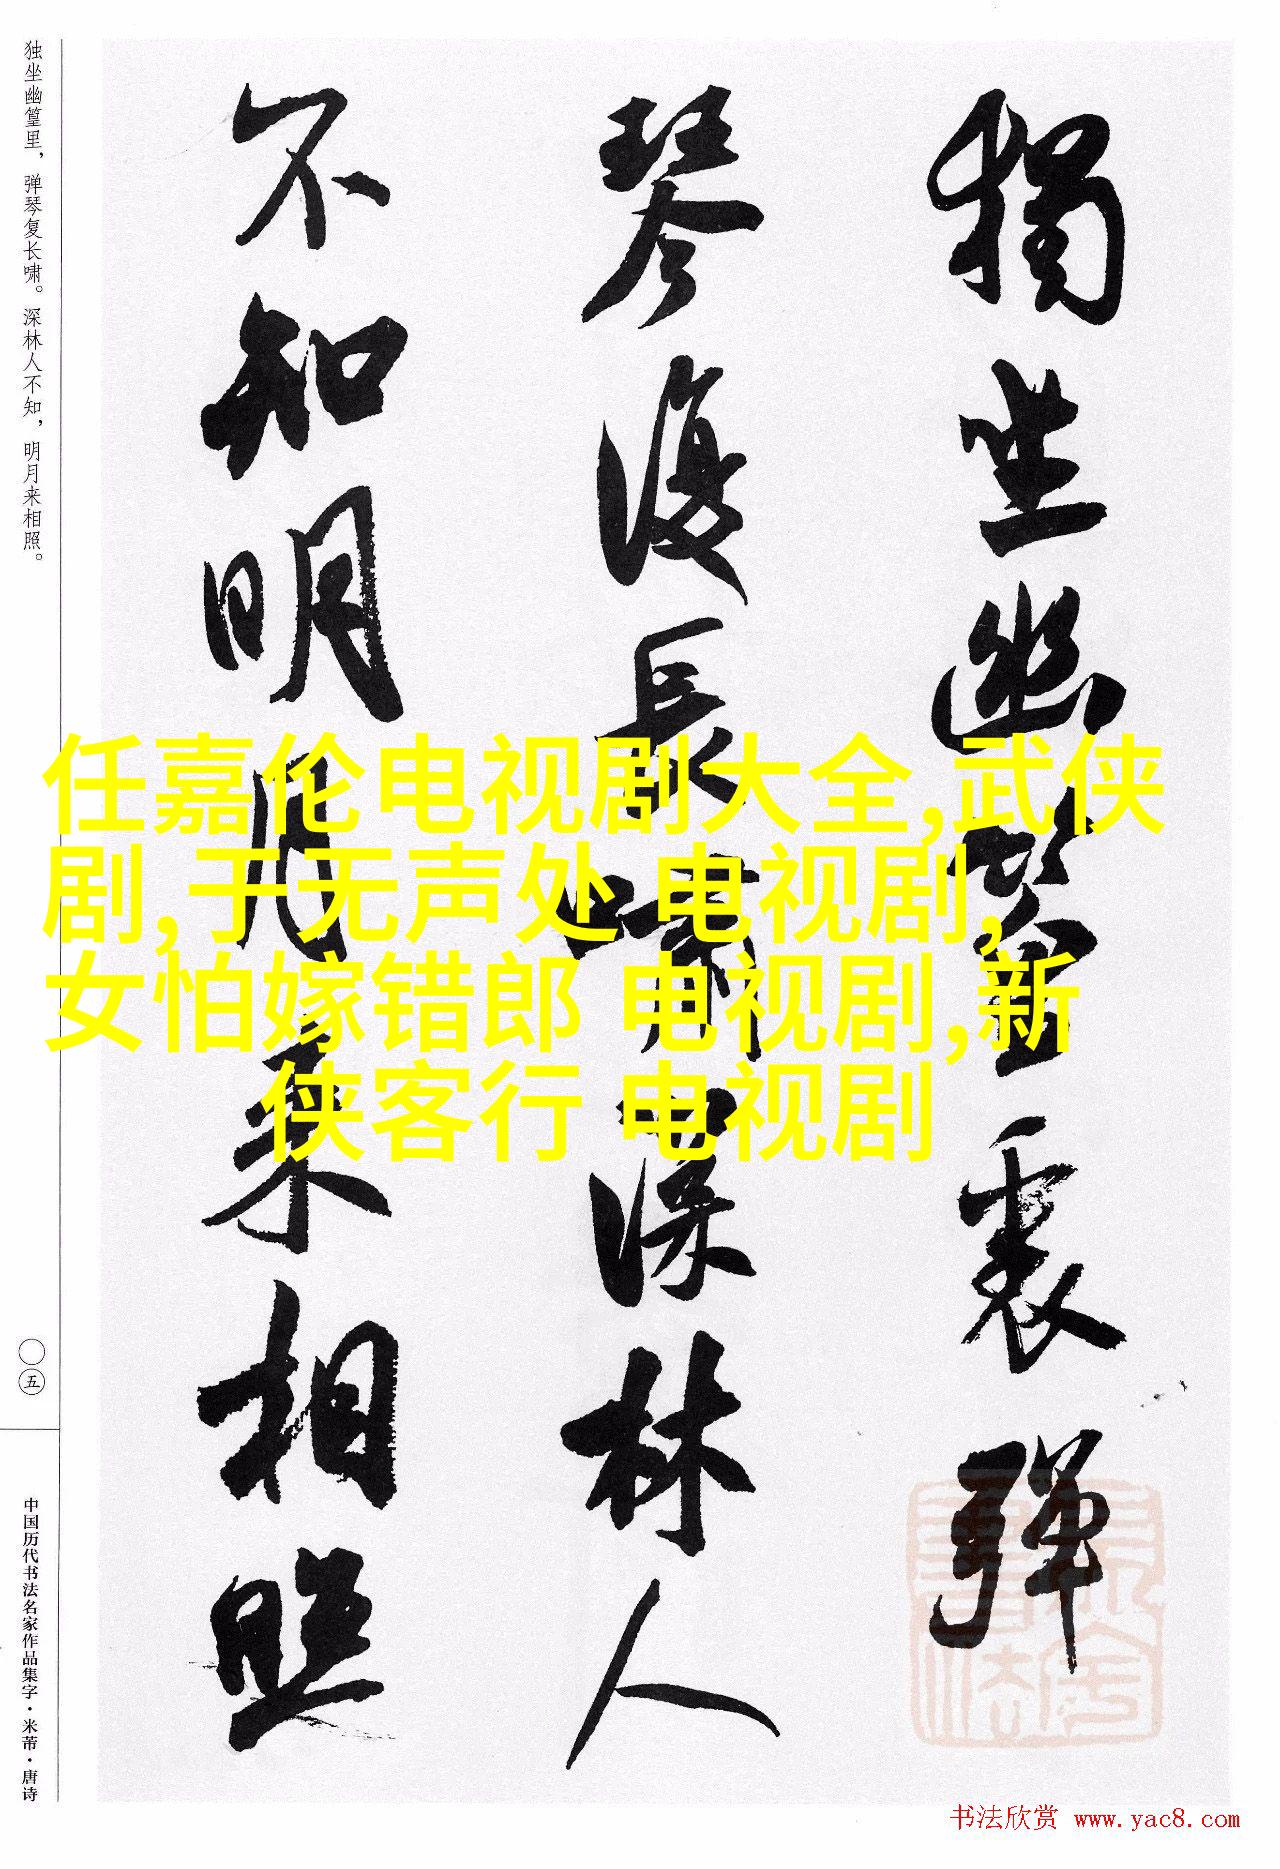 獨坐幽篁裏彈
琴復長嘯深林人
不知明月來相照
独坐幽篁里，弹琴复长啸。深林人不知，明月来相照。
〇五
中国历代书法名家作品集字·米芾·唐诗
任嘉伦电视剧大全,武侠
剧,于无声处 电视剧,
女怕嫁错郎 电视剧,新
侠客行 电视剧
书法欣赏 www.yac8.com